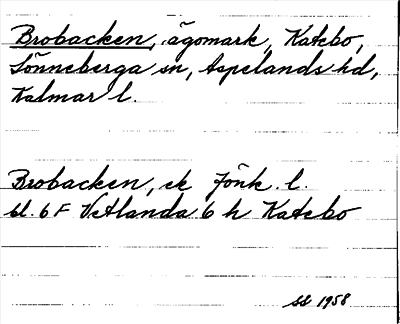 Brobacken, ägomark, Katebo,
Lönneberga sn, Aspelands hd,
Kalmar l.
Brobacken, ek Jönk. l.
bl. 6 F Vetlanda 6 h Katebo
sd 1958